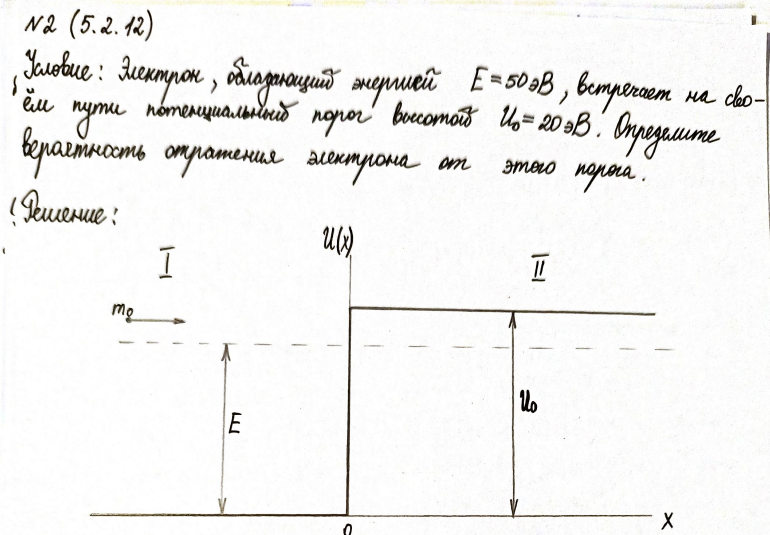 №2 (5.2.12)
Условие: Электрон, обладающий энергией E = 50 эВ, встречает на сво-
ём пути потенциальный порог высотой U₀ = 20 эВ. Определите
вероятность отражения электрона от этого порога.
Решение:
U(x)
I
II
m₀
E
U₀
0
X